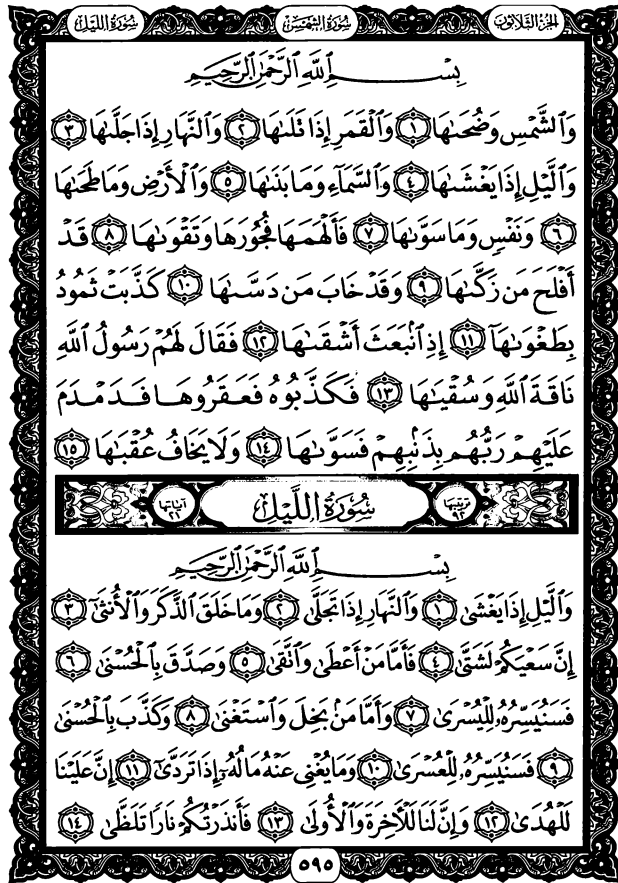 الجزء الثلاثون سورة الشمس سورة الليل
بِسْمِ ٱللَّهِ ٱلرَّحْمَٰنِ ٱلرَّحِيمِ
وَٱلشَّمْسِ وَضُحَىٰهَا ١ وَٱلْقَمَرِ إِذَا تَلَىٰهَا ٢ وَٱلنَّهَارِ إِذَا جَلَّىٰهَا ٣
وَٱلَّيْلِ إِذَا يَغْشَىٰهَا ٤ وَٱلسَّمَآءِ وَمَا بَنَىٰهَا ٥ وَٱلْأَرْضِ وَمَا طَحَىٰهَا
٦ وَنَفْسٍ وَمَا سَوَّىٰهَا ٧ فَأَلْهَمَهَا فُجُورَهَا وَتَقْوَىٰهَا ٨ قَدْ
أَفْلَحَ مَن زَكَّىٰهَا ٩ وَقَدْ خَابَ مَن دَسَّىٰهَا ١٠ كَذَّبَتْ ثَمُودُ
بِطَغْوَىٰهَآ ١١ إِذِ ٱنۢبَعَثَ أَشْقَىٰهَا ١٢ فَقَالَ لَهُمْ رَسُولُ ٱللَّهِ
نَاقَةَ ٱللَّهِ وَسُقْيَٰهَا ١٣ فَكَذَّبُوهُ فَعَقَرُوهَا فَدَمْدَمَ
عَلَيْهِمْ رَبُّهُم بِذَنۢبِهِمْ فَسَوَّىٰهَا ١٤ وَلَا يَخَافُ عُقْبَٰهَا ١٥
ترتيبها ٩٢ سُورَةُ اللَّيْلِ آياتها ٢١
بِسْمِ ٱللَّهِ ٱلرَّحْمَٰنِ ٱلرَّحِيمِ
وَٱلَّيْلِ إِذَا يَغْشَىٰ ١ وَٱلنَّهَارِ إِذَا تَجَلَّىٰ ٢ وَمَا خَلَقَ ٱلذَّكَرَ وَٱلْأُنثَىٰٓ ٣
إِنَّ سَعْيَكُمْ لَشَتَّىٰ ٤ فَأَمَّا مَنْ أَعْطَىٰ وَٱتَّقَىٰ ٥ وَصَدَّقَ بِٱلْحُسْنَىٰ ٦
فَسَنُيَسِّرُهُۥ لِلْيُسْرَىٰ ٧ وَأَمَّا مَنۢ بَخِلَ وَٱسْتَغْنَىٰ ٨ وَكَذَّبَ بِٱلْحُسْنَىٰ
٩ فَسَنُيَسِّرُهُۥ لِلْعُسْرَىٰ ١٠ وَمَا يُغْنِى عَنْهُ مَالُهُۥٓ إِذَا تَرَدَّىٰٓ ١١ إِنَّ عَلَيْنَا
لَلْهُدَىٰ ١٢ وَإِنَّ لَنَا لَلْءَاخِرَةَ وَٱلْأُولَىٰ ١٣ فَأَنذَرْتُكُمْ نَارًا تَلَظَّىٰ ١٤
٥٩٥